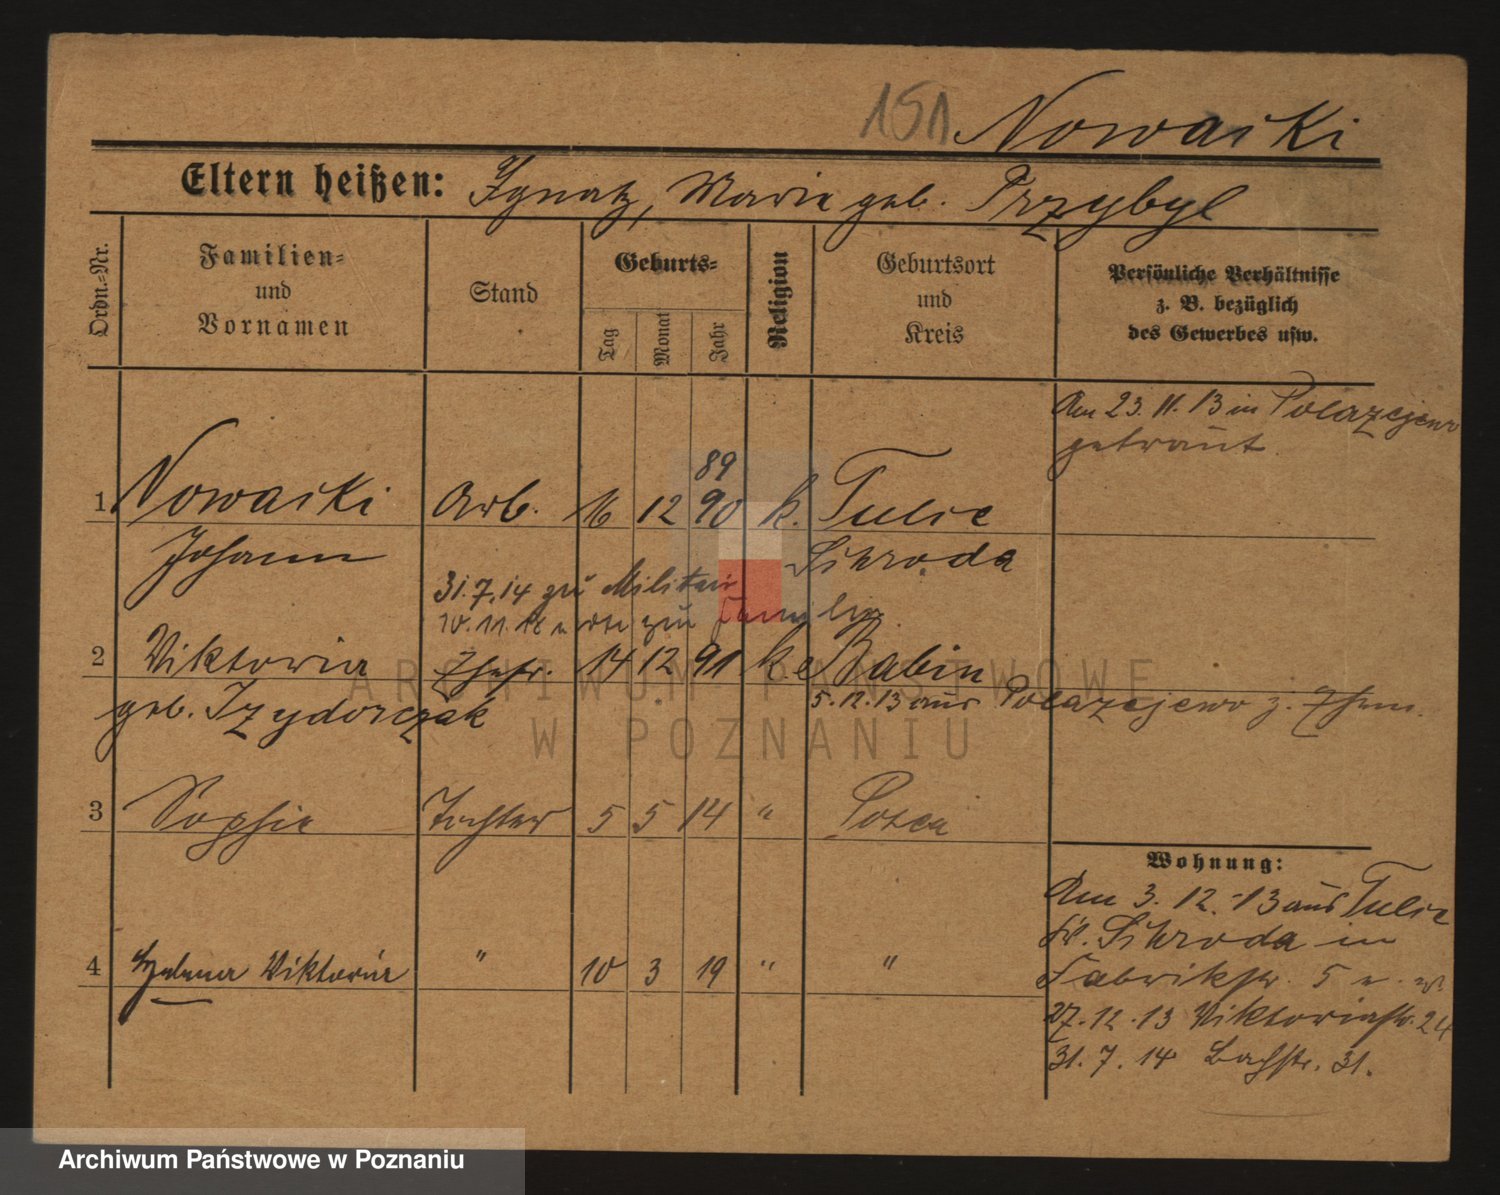 151 Nowacki
Eltern heißen: Ignatz, Marie geb. Przybyl
Ordn.-Nr.
Familien-
und
Vornamen
Stand
Geburts-
Tag
Monat
Jahr
Religion
Geburtsort
und
Kreis
Persönliche Verhältnisse
z. B. bezüglich
des Gewerbes usw.
Am 23. 11. 13 in Polazejewo
getraut
89
1 Nowacki Arb. 16 12 90 k. Tulce
Johann Schroda
31.7.14 zu Militair
10.11.18 zu Familie
2 Viktoria Ehefr. 14 12 91 k. Babin
geb. Izydorczak 5.12.13 aus Polazejewo z. Ehem.
3 Sophie Tochter 5 5 14 " Posen
4 Helena Viktoria " 10 3 19 " "
Wohnung:
Am 3. 12. 13 aus Tulce
Kr. Schroda in
Fabrikstr. 5
27.12.13 Viktoriastr. 24
31. 7. 14 Bachstr. 31.
ARCHIWUM PAŃSTWOWE
W POZNANIU
Archiwum Państwowe w Poznaniu